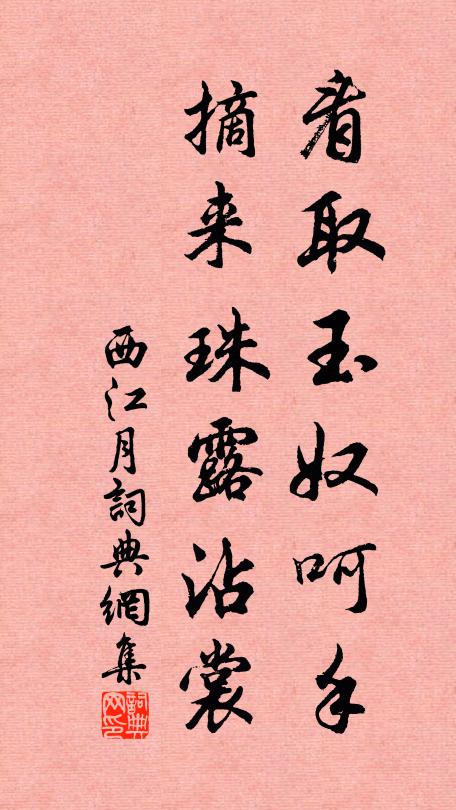 看取玉奴呵手
摘来珠露沾裳
西江月詞典網集
詞典网印